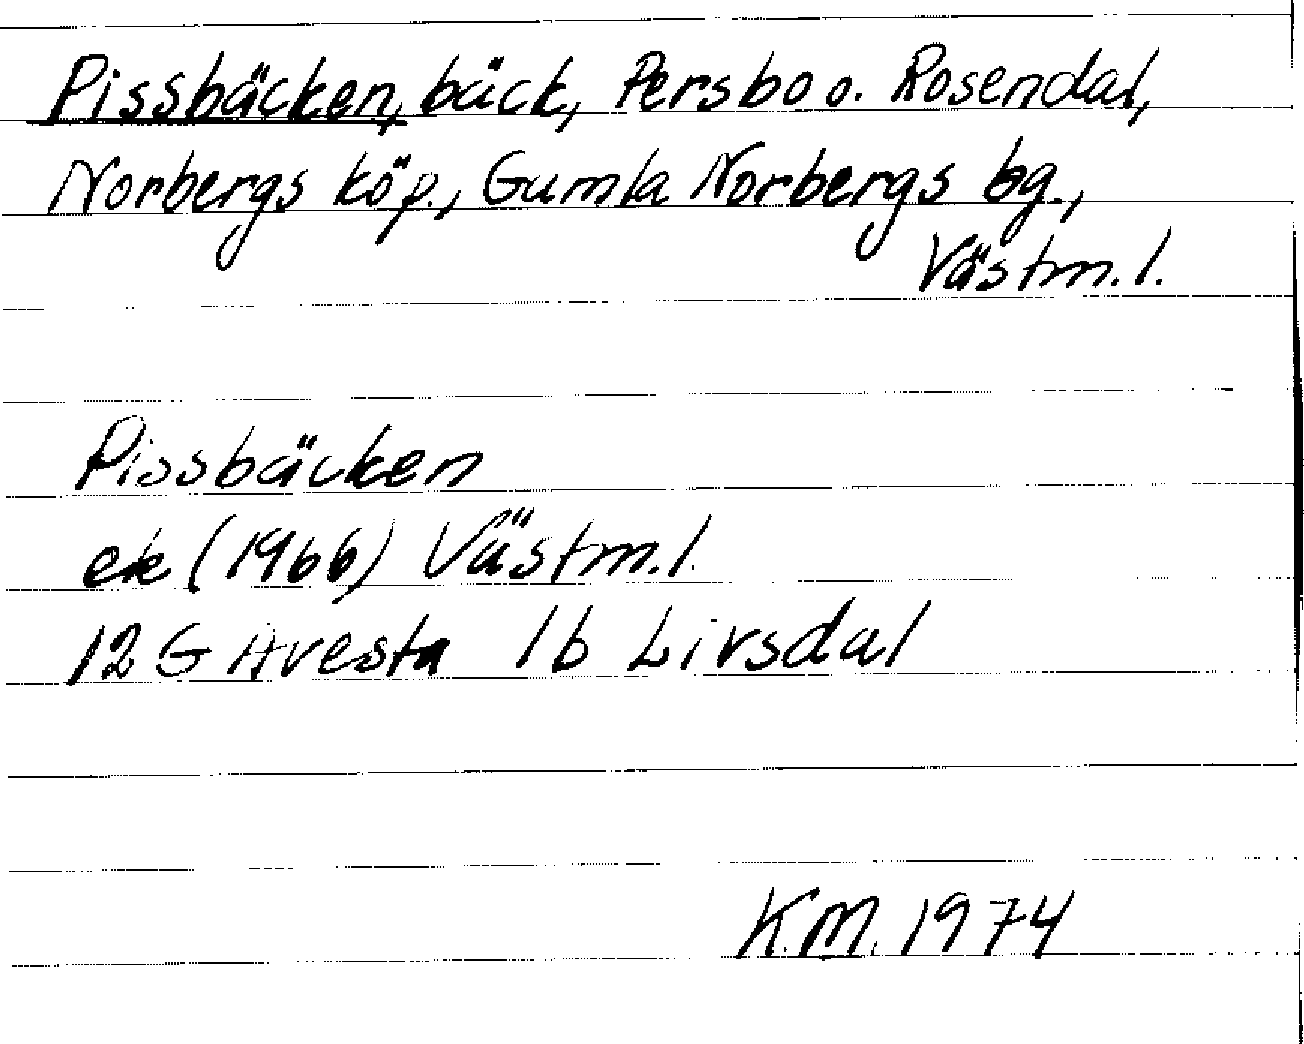 Pissbäcken, bäck, Persbo o. Rosendal,
Norbergs köp., Gamla Norbergs bg.,
Västm. l.
Pissbäcken
ek (1966) Västm. l.
12 G Avesta 1b Livsdal
K.M. 1974